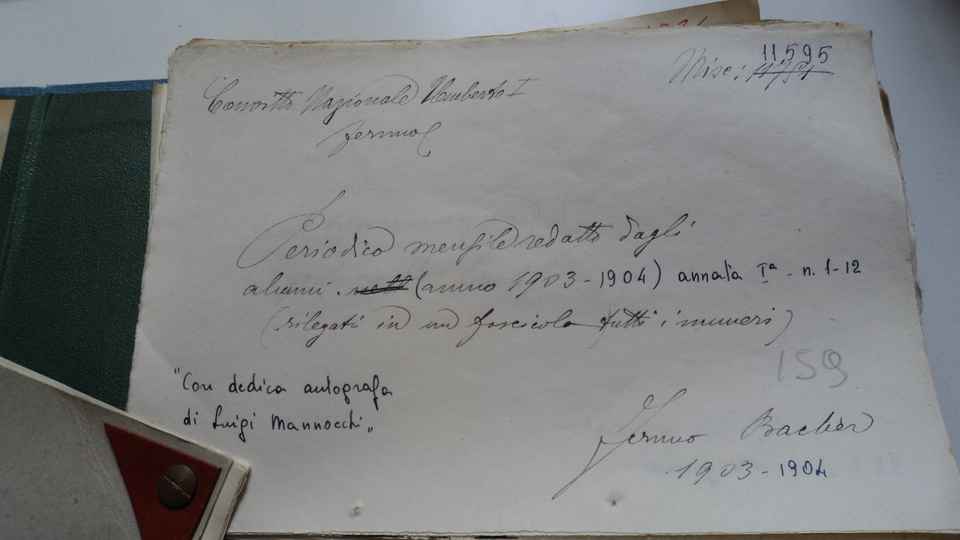 Misc: 11.595
Convitto Nazionale Umberto I
Fermo
Periodico mensile redatto dagli
alunni (anno 1903-1904) annata Iª - n. 1-12
(rilegati in un fascicolo tutti i numeri)
159
"Con dedica autografa
di Luigi Mannocchi"
Fermo Bacher
1903-1904